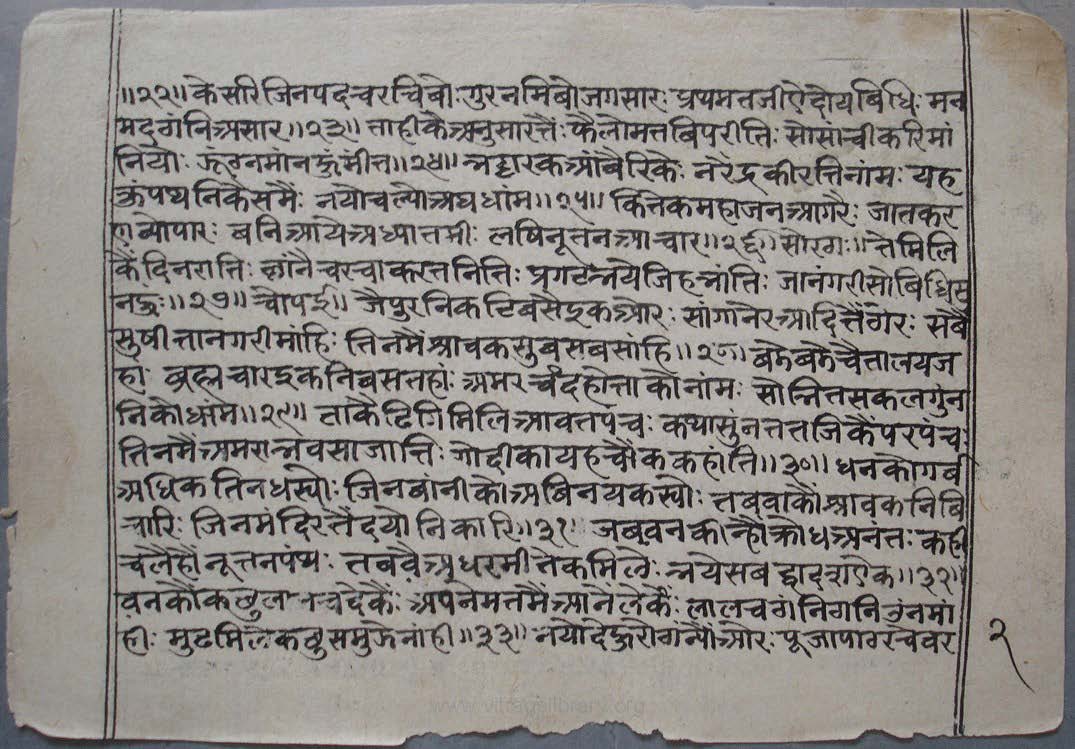 ॥२२॥ केसरि जिनपद चरचिबो: गुर नमिबो जगसार: प्रथम तजी ऐ दोय बिधि: मन
मद गंनि असार॥२३॥ ताही कै अनुसार तैं: फैलो मत बिपरीति: सो सांची करि मां
नियो: झूंठ न मांनहु मींत॥२४॥ भट्टारक आंबैरिके: नरेंद्र कीरति नांम: यह
कुंपथ तिकेसमैं: नयो चल्यो अघधांम॥२५॥ कितेक महाजन आगरै: जात कर
ण ब्योपार: बनि आंये अध्यातमी: लषि नूतन आचार॥२६॥ सोरठा॥ ते मिलि
कैं दिन राति: छांनै चरचा करत निति: प्रगट भयै जिह भांति: जा नगरी सो बिधि सु
नहु:॥२७॥ चौपई॥ जैपुर निकटि बसै इक और: सांगानेर आदि तैं ठौर: सबै
सुषी ता नगरी मांहि: तिनमैं श्रावक सुबस बसांहि॥२८॥ बडे बडे चैत्यालय ज
हां: ब्रह्मचार इक निबसत तहां: अमर चंद हो ताको नांम: सोभित सकल गुंन
निको धांम॥२९॥ ताकै ढिगि मिलि आवत पंच: कथा सुंनत तजिकैं परपंच:
तिनमैं अमरा भवसा जाति: गोदीका यह ब्योंक कहांति॥३०॥ धनको गर्ब
अधिक तिन धस्यो: जिनबांनी को अबिनय कस्यो: तब वाकों श्रावकनि बि
चारि: जिनमंदिर तैं दयो निकारि॥३१॥ जब वन कीन्हों क्रोध अनंत: कही
चलैहों नूतन पंथ: तब वै अधरमी तेक मिले: भये सब द्वादश ऐक॥३२॥
वनकों कछु लालच देकैं: अपने मत मैं आंनै लेकैं: लालच ठंनि गनि गुंन मां
ही: मुढ मिले कछु समुझे नांही॥३३॥ नयो देहुरो ठंन्यों और: पूजा पाठ रचे वर
२
www.vitragelibrary.org